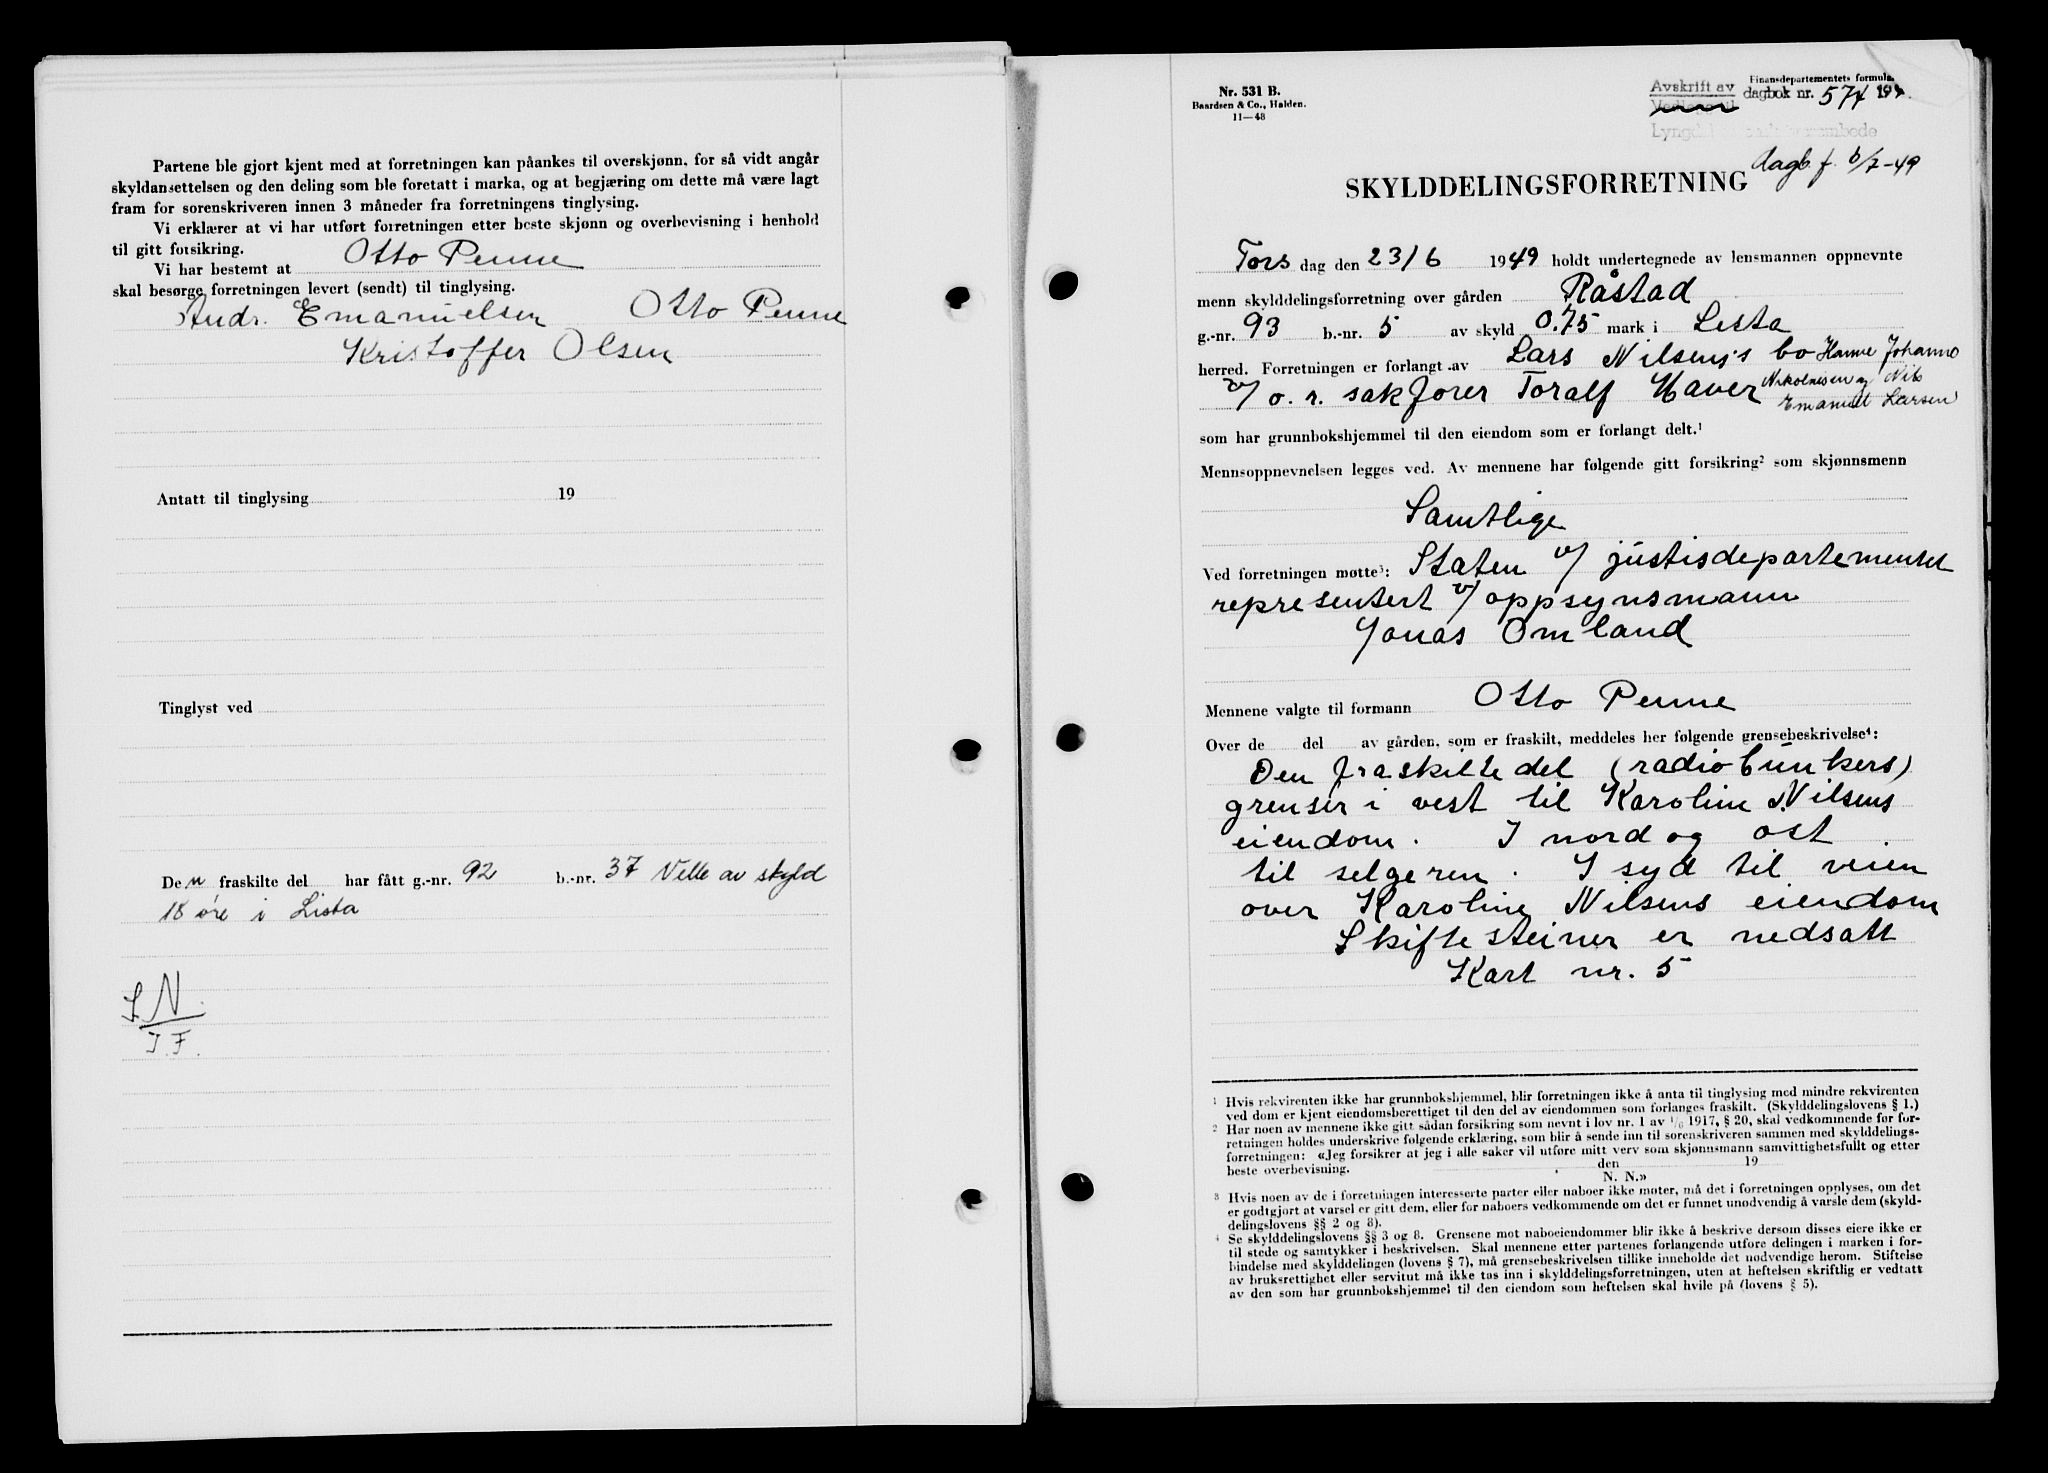 Partene ble gjort kjent med at forretningen kan påankes til overskjønn, for så vidt angår
skyldansettelsen og den deling som ble foretatt i marka, og at begjæring om dette må være lagt
fram for sorenskriveren innen 3 måneder fra forretningens tinglysing.
Vi erklærer at vi har utført forretningen etter beste skjønn og overbevisning i henhold
til gitt forsikring.
Vi har bestemt at Otto Penne
skal besørge forretningen levert (sendt) til tinglysing.
Andr. Emanuelsen Otto Penne
Kristoffer Olsen
Antatt til tinglysing 19
Tinglyst ved
Den fraskilte del har fått g.-nr. 92 b.-nr. 37 Velle av skyld
18 øre i Lista
S.N.
J.F.
Nr. 531 B.
Baardsen & Co., Halden.
11—48
Finansdepartementets formular
Avskrift av dagbok nr. 574 19
dagb f. 6/7-49
SKYLDDELINGSFORRETNING
Tors dag den 23/6 1949 holdt undertegnede av lensmannen oppnevnte
menn skylddelingsforretning over gården Råstad
g.-nr. 93 b.-nr. 5 av skyld 0.75 mark i Lista
herred. Forretningen er forlangt av Lars Nilsen's bo Hanne Johanne
v/ o. r. sakfører Toralf Haver Nikolaisen og Nils
Emanuel Larsen
som har grunnbokshjemmel til den eiendom som er forlangt delt.¹
Mennsoppnevnelsen legges ved. Av mennene har følgende gitt forsikring² som skjønnsmenn
Samtlige
Ved forretningen møtte³: Staten v/ justisdepartementet
representert v/ oppsynsmann
Jonas Omland
Mennene valgte til formann Otto Penne
Over de del av gården, som er fraskilt, meddeles her følgende grensebeskrivelse⁴:
Den fraskilte del (radiobunkers)
grenser i vest til Karoline Nilsens
eiendom. I nord og øst
til selgeren. I syd til veien
over Karoline Nilsens eiendom
Skiftesteiner er nedsatt
Kart nr. 5
¹ Hvis rekvirenten ikke har grunnbokshjemmel, blir forretningen ikke å anta til tinglysing med mindre rekvirenten
ved dom er kjent eiendomsberettiget til den del av eiendommen som forlanges fraskilt. (Skylddelingslovens § 1.)
² Har noen av mennene ikke gitt sådan forsikring som nevnt i lov nr. 1 av 1/6 1917, § 20, skal vedkommende før for-
retningen holdes underskrive følgende erklæring, som blir å sende inn til sorenskriveren sammen med skylddelings-
forretningen: «Jeg forsikrer at jeg i alle saker vil utføre mitt verv som skjønnsmann samvittighetsfullt og etter
beste overbevisning. den 19
N. N.»
³ Hvis noen av de i forretningen interesserte parter eller naboer ikke møter, må det i forretningen opplyses, om det
er godtgjort at varsel er gitt dem, eller for naboers vedkommende om det er funnet unødvendig å varsle dem (skyld-
delingslovens §§ 2 og 8).
⁴ Se skylddelingslovens §§ 3 og 8. Grensene mot naboeiendommer blir ikke å beskrive dersom disses eiere ikke er
til stede og samtykker i beskrivelsen. Skal mennene etter partenes forlangende utføre delingen i marken i for-
bindelse med skylddelingen (lovens § 7), må grensebeskrivelsen tillike inneholde det nødvendige herom. Stiftelse
av bruksrettighet eller servitut må ikke tas inn i skylddelingsforretningen, uten at heftelsen skriftlig er vedtatt
av den som har grunnbokshjemmel til den eiendom som heftelsen skal hvile på (lovens § 5).